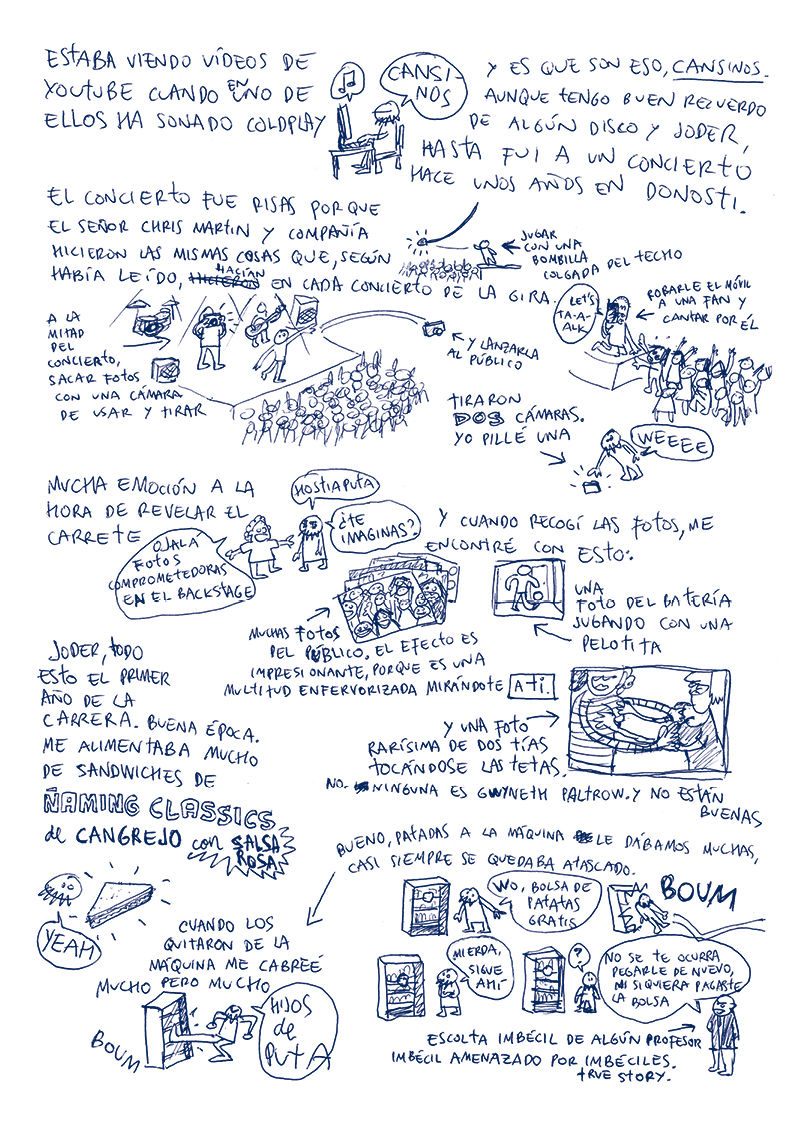 ESTABA VIENDO VÍDEOS DE
YOUTUBE CUANDO EN UNO DE
ELLOS HA SONADO COLDPLAY
CANSI-
NOS
Y ES QUE SON ESO, CANSINOS.
AUNQUE TENGO BUEN RECUERDO
DE ALGÚN DISCO Y JODER,
HASTA FUI A UN CONCIERTO
HACE UNOS AÑOS EN DONOSTI.
EL CONCIERTO FUE RISAS PORQUE
EL SEÑOR CHRIS MARTIN Y COMPAÑÍA
HICIERON LAS MISMAS COSAS QUE, SEGÚN
HABÍA LEÍDO, HICIERON HACÍAN EN CADA CONCIERTO DE LA GIRA.
JUGAR
CON UNA
BOMBILLA
COLGADA DEL TECHO
A LA
MITAD
DEL
CONCIERTO,
SACAR FOTOS
CON UNA CÁMARA
DE USAR Y TIRAR
Y LANZARLA
AL PÚBLICO
LET'S
TA-A-
ALK
ROBARLE EL MÓVIL
A UNA FAN Y
CANTAR POR ÉL
TIRARON
DOS CÁMARAS.
YO PILLÉ UNA
WEEEE
MUCHA EMOCIÓN A LA
HORA DE REVELAR EL
CARRETE
OJALA
FOTOS
COMPROMETEDORAS
EN EL BACKSTAGE
HOSTIAPUTA
¿TE
IMAGINAS?
Y CUANDO RECOGÍ LAS FOTOS, ME
ENCONTRÉ CON ESTO:
MUCHAS FOTOS
DEL PÚBLICO. EL EFECTO ES
IMPRESIONANTE, PORQUE ES UNA
MULTITUD ENFERVORIZADA MIRÁNDOTE A TI.
UNA
FOTO DEL BATERÍA
JUGANDO CON UNA
PELOTITA
Y UNA FOTO
RARÍSIMA DE DOS TÍAS
TOCÁNDOSE LAS TETAS.
NO. NINGUNA ES GWYNETH PALTROW. Y NO ESTÁN
BUENAS
JODER, TODO
ESTO EL PRIMER
AÑO DE LA
CARRERA. BUENA ÉPOCA.
ME ALIMENTABA MUCHO
DE SANDWICHES DE
ÑAMING CLASSICS
de CANGREJO con SALSA
ROSA
YEAH
CUANDO LOS
QUITARON DE LA
MÁQUINA ME CABREÉ
MUCHO PERO MUCHO
BOUM
HIJOS
de
PUTA
BUENO, PATADAS A LA MÁQUINA LE DÁBAMOS MUCHAS,
CASI SIEMPRE SE QUEDABA ATASCADO.
WO, BOLSA DE
PATATAS
GRATIS
BOUM
MIERDA,
SIGUE
AHÍ
?
NO SE TE OCURRA
PEGARLE DE NUEVO,
NI SIQUIERA PAGASTE
LA BOLSA
ESCOLTA IMBÉCIL DE ALGÚN PROFESOR
IMBÉCIL AMENAZADO POR IMBÉCILES.
TRUE STORY.